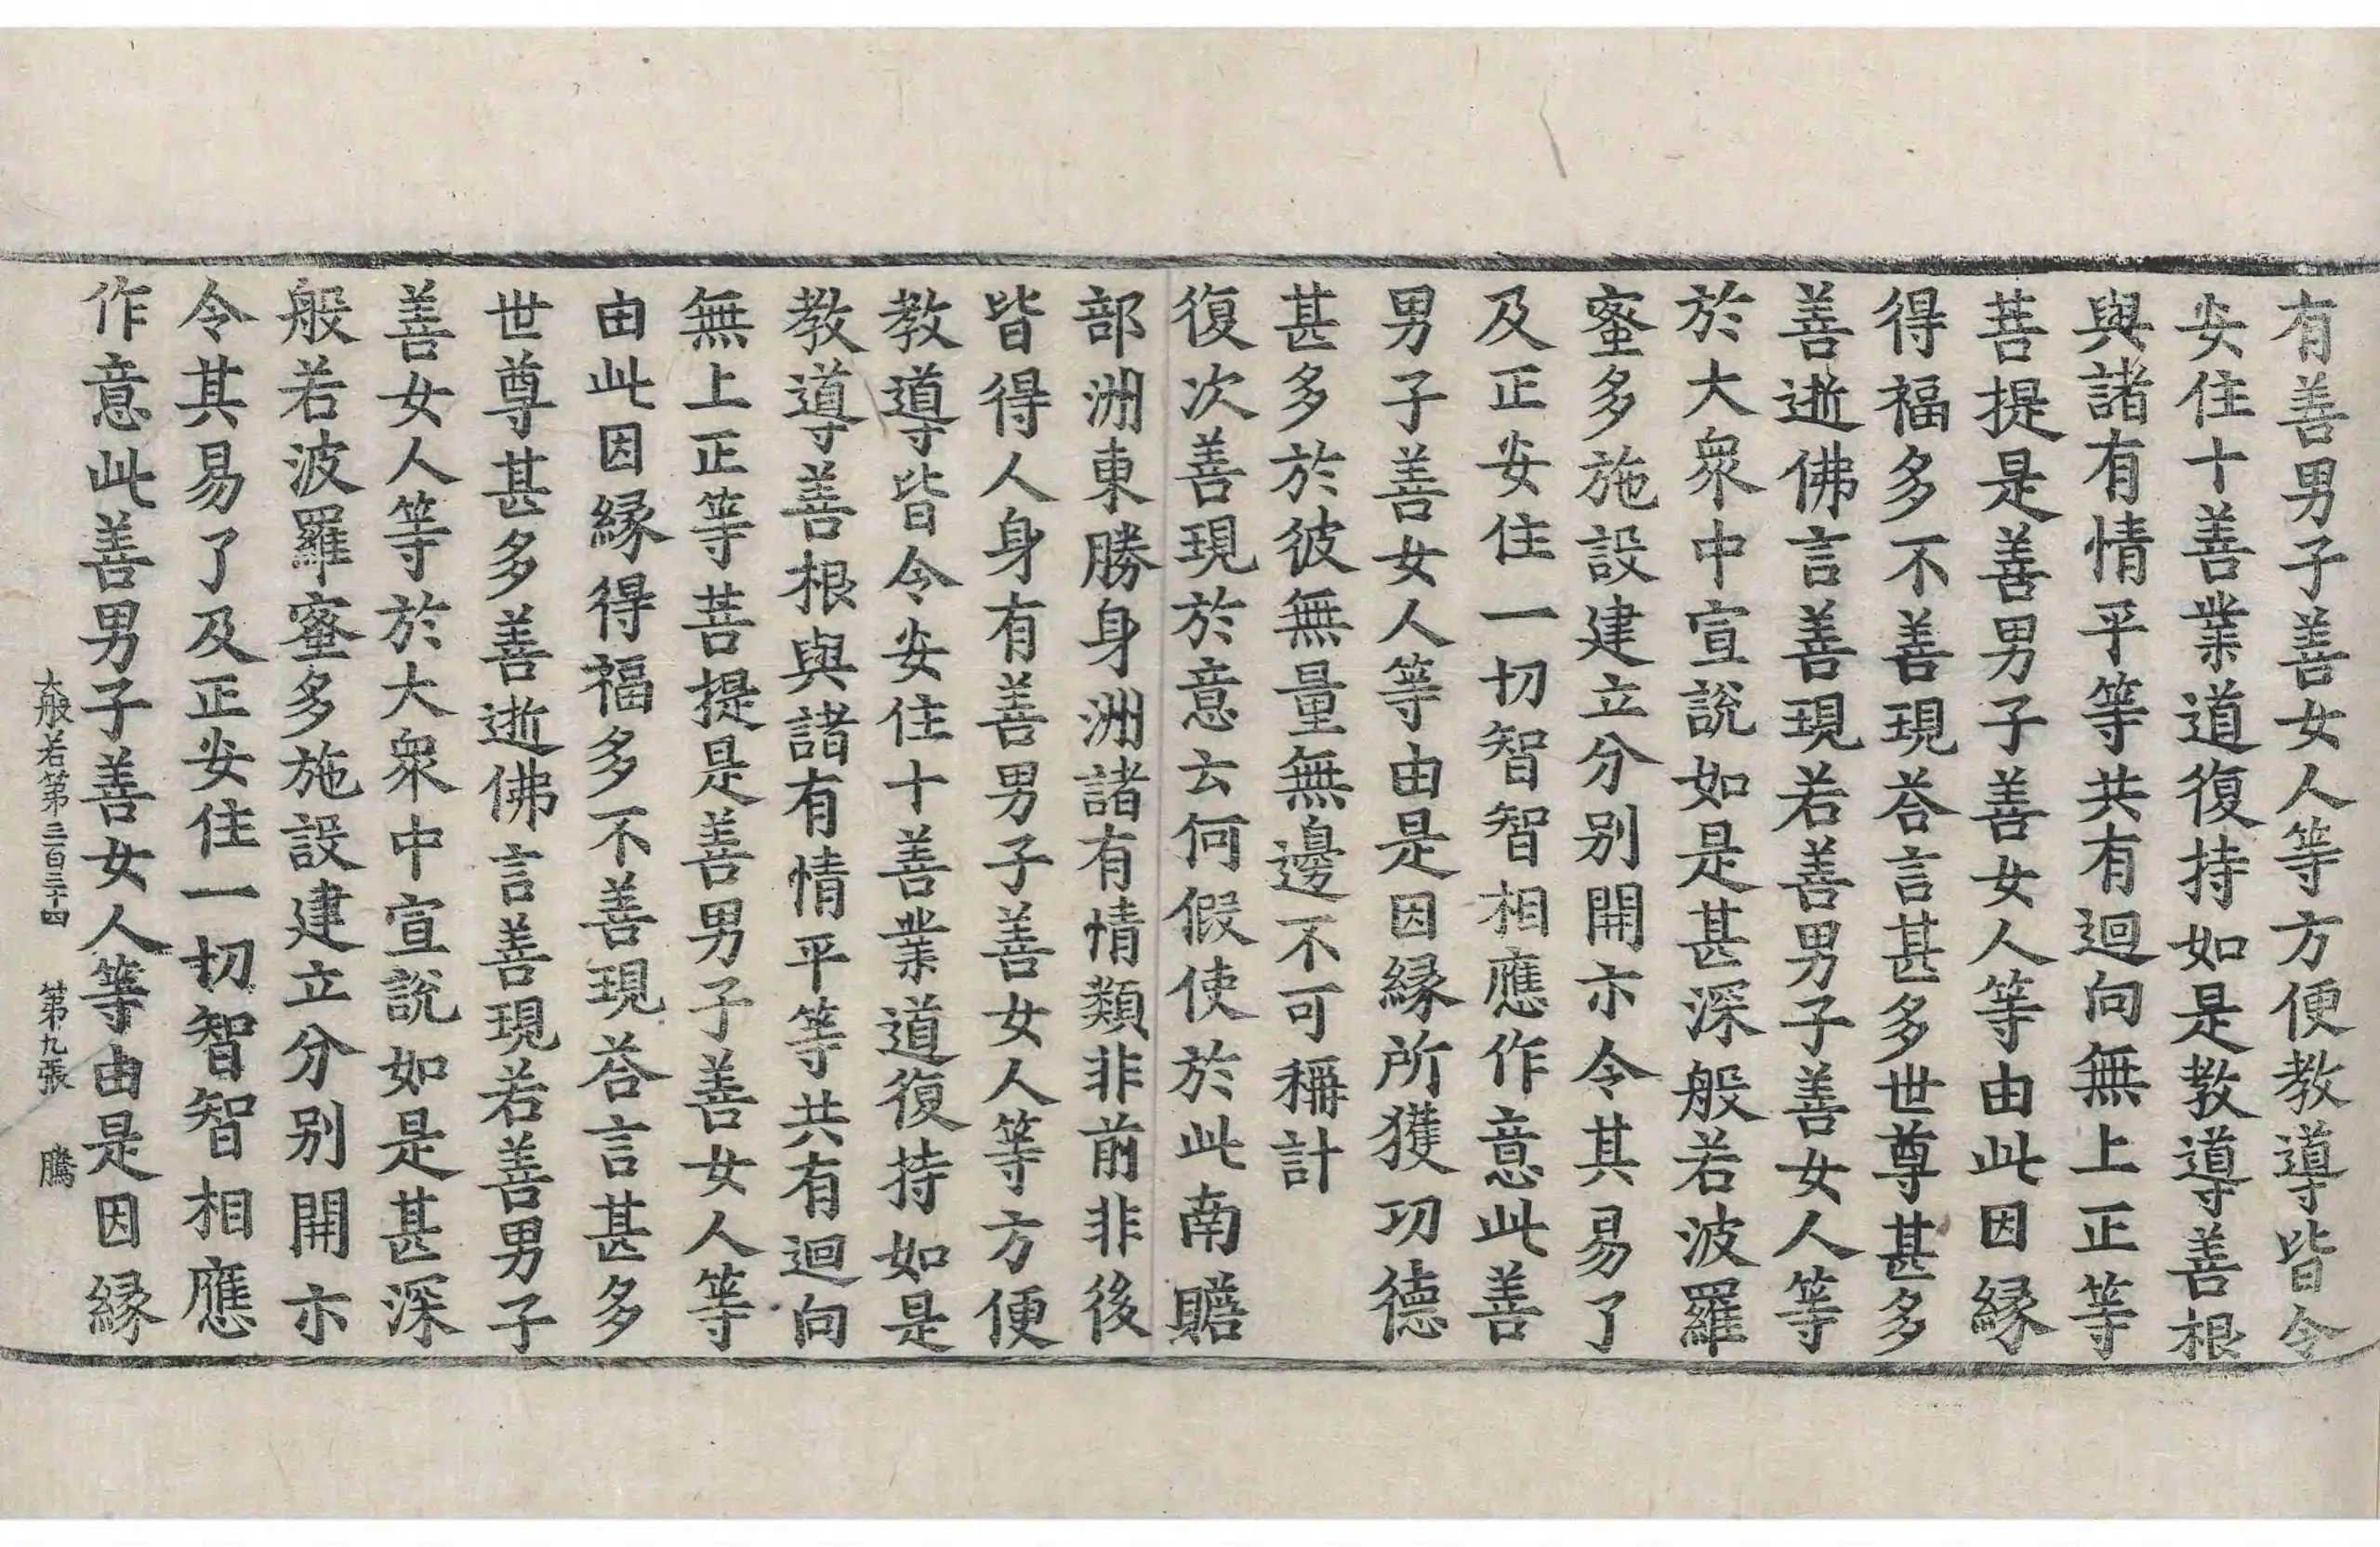 有善男子善女人等方便教導皆令
安住十善業道復持如是教導善根
與諸有情平等共有迴向無上正等
菩提是善男子善女人等由此因縁
得福多不善現荅言甚多世尊甚多
善逝佛言善現若善男子善女人等
於大衆中宣說如是甚深般若波羅
蜜多施設建立分别開亦令其易了
及正安住一切智智相應作意此善
男子善女人等由是因縁所獲功德
甚多於彼無量無邊不可稱計
復次善現於意云何假使於此南贍
部洲東勝身洲諸有情類非前非後
皆得人身有善男子善女人等方便
教導皆令安住十善業道復持如是
教導善根與諸有情平等共有迴向
無上正等菩提是善男子善女人等
由此因縁得福多不善現荅言甚多
世尊甚多善逝佛言善現若善男子
善女人等於大衆中宣說如是甚深
般若波羅蜜多施設建立分别開亦
令其易了及正安住一切智智相應
作意此善男子善女人等由是因縁
大般若第三百三十四 第九張 騰